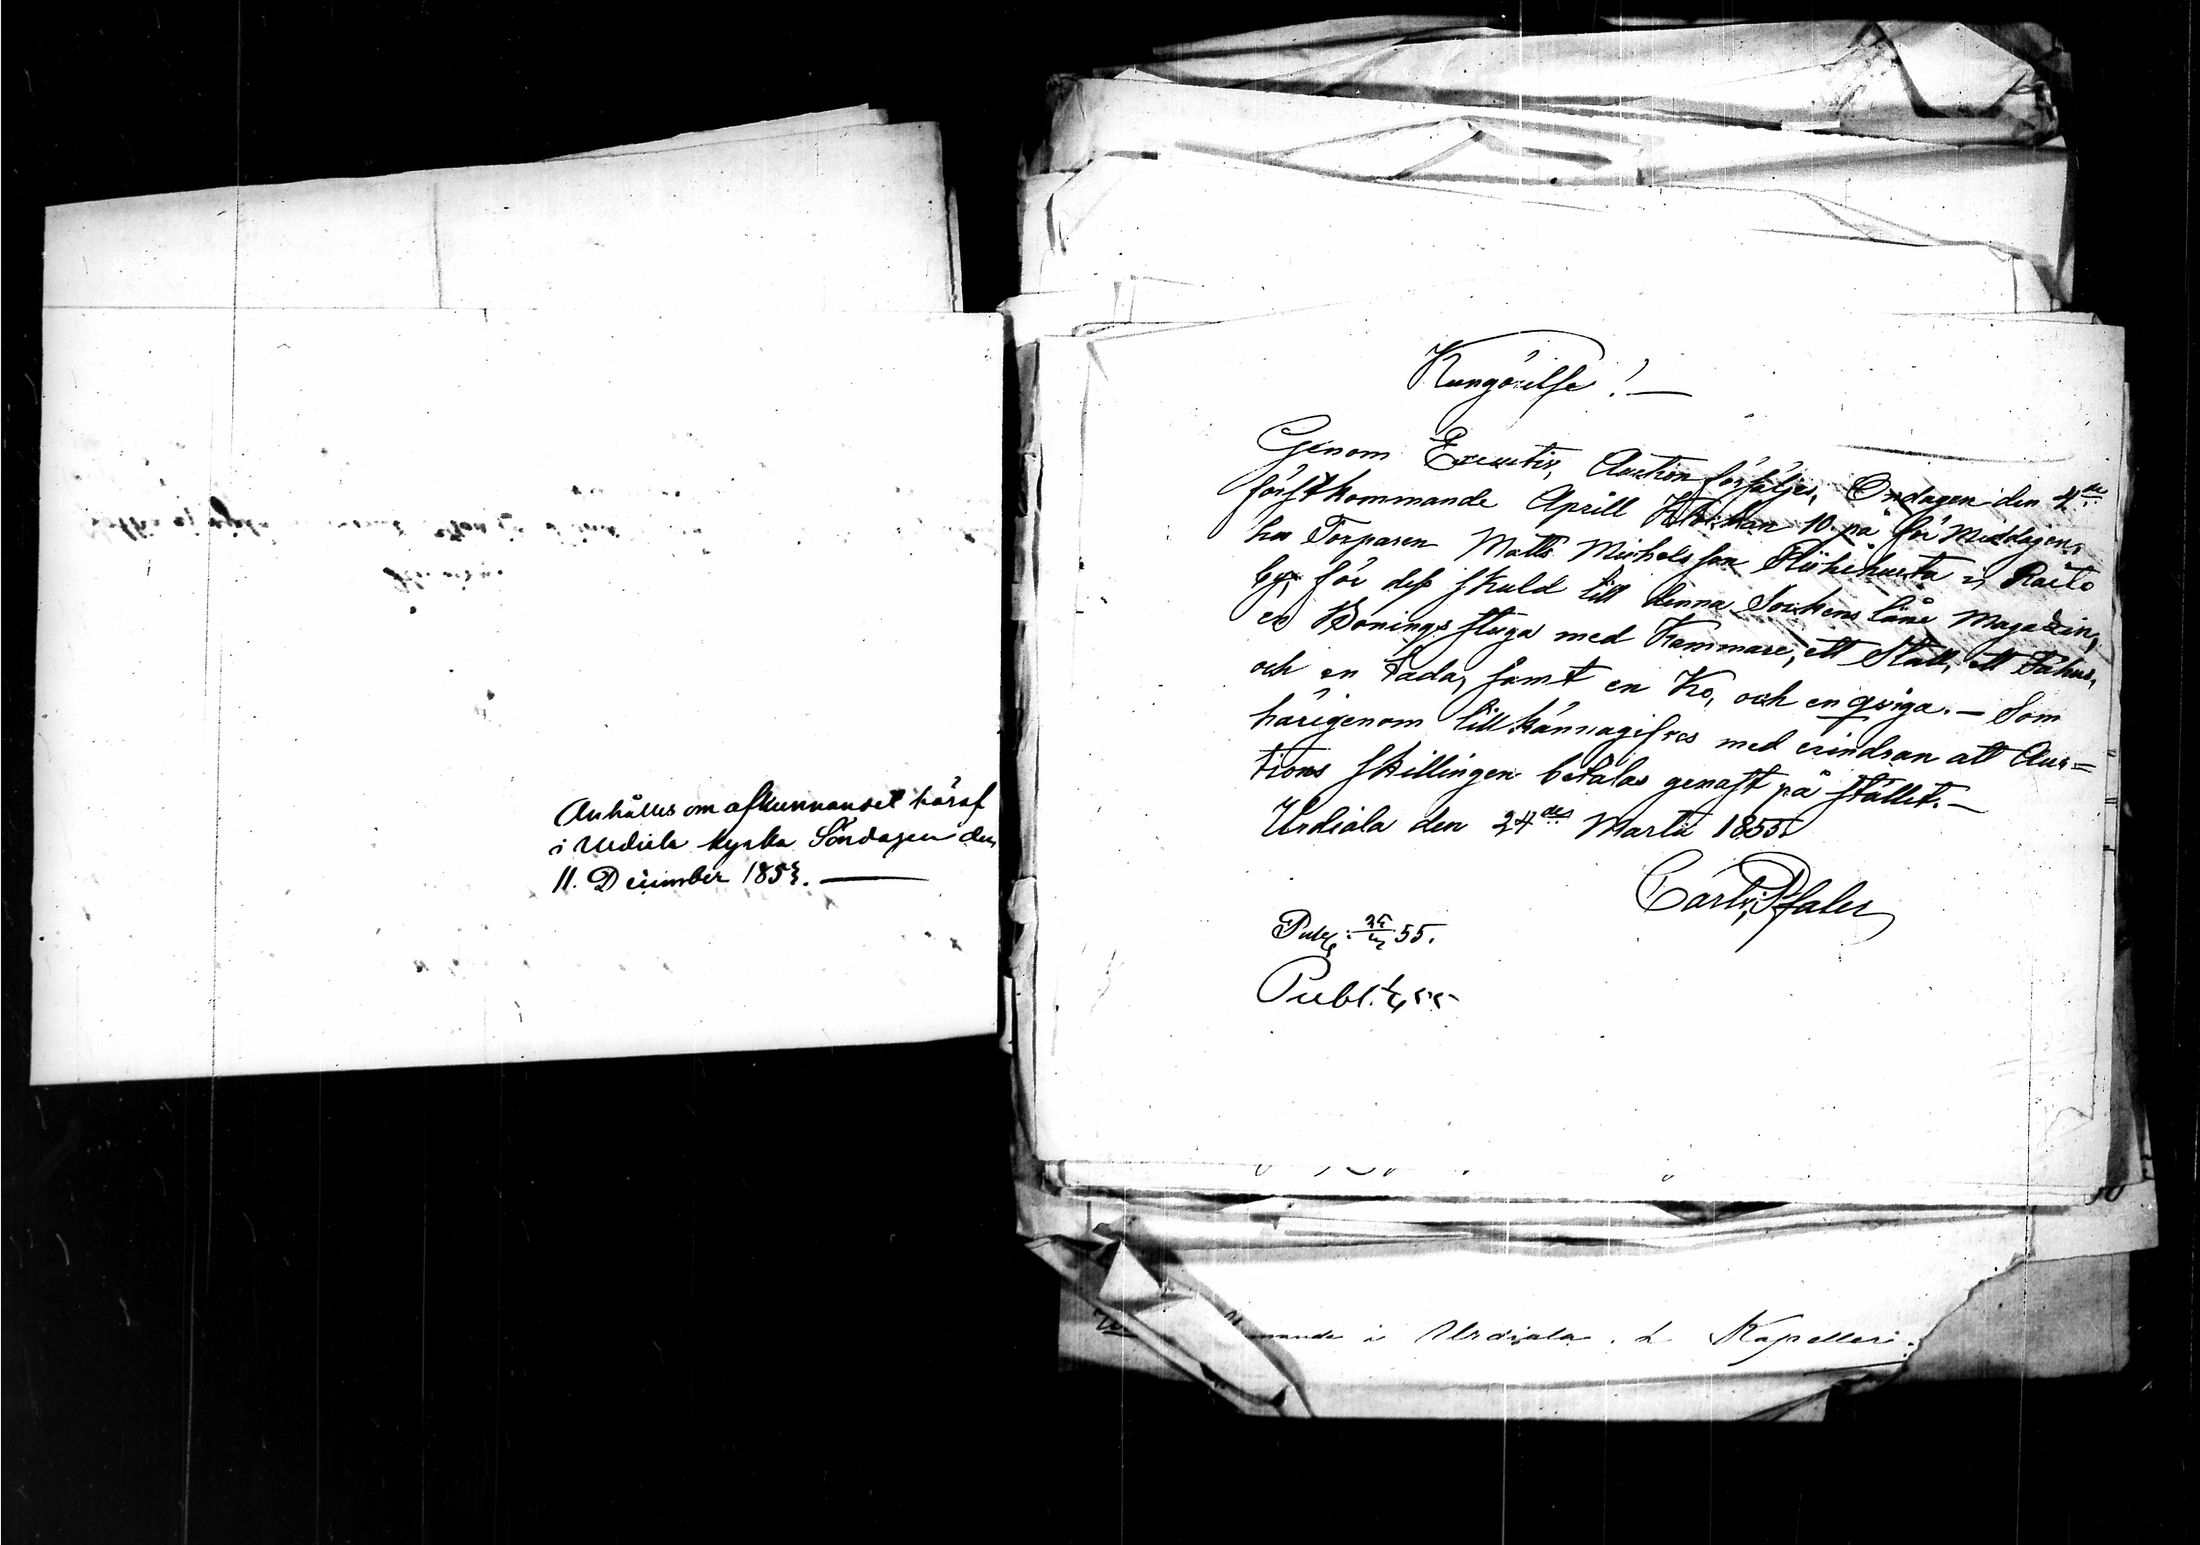 Anhålles om afkunnandet häraf
i Urdiala kyrka Söndagen den
11. December 1853.
Kungörelse!
Genom Executiv, Auction försäljes, Onsdagen den 4de
förstkommande Aprill Klockan 10 på för Middagen,
hos Torparen Matts Michelsson i Raito
by, för dess skuld till denna Sockens låne Magazin,
en Bonings stuga med Kammare, ett Stall, ett Fähus,
och en Lada, samt en Ko, och en qviga. — Som
härigenom till kännagifves med erindran att Auc=
tions skillingen betalas genast på stället. —
Urdiala den 24de Martii 1855.
Carl v. Pfaler
Publ: 25/3 55.
Publ. 1/4 55
i Urdiala. Kapellari.